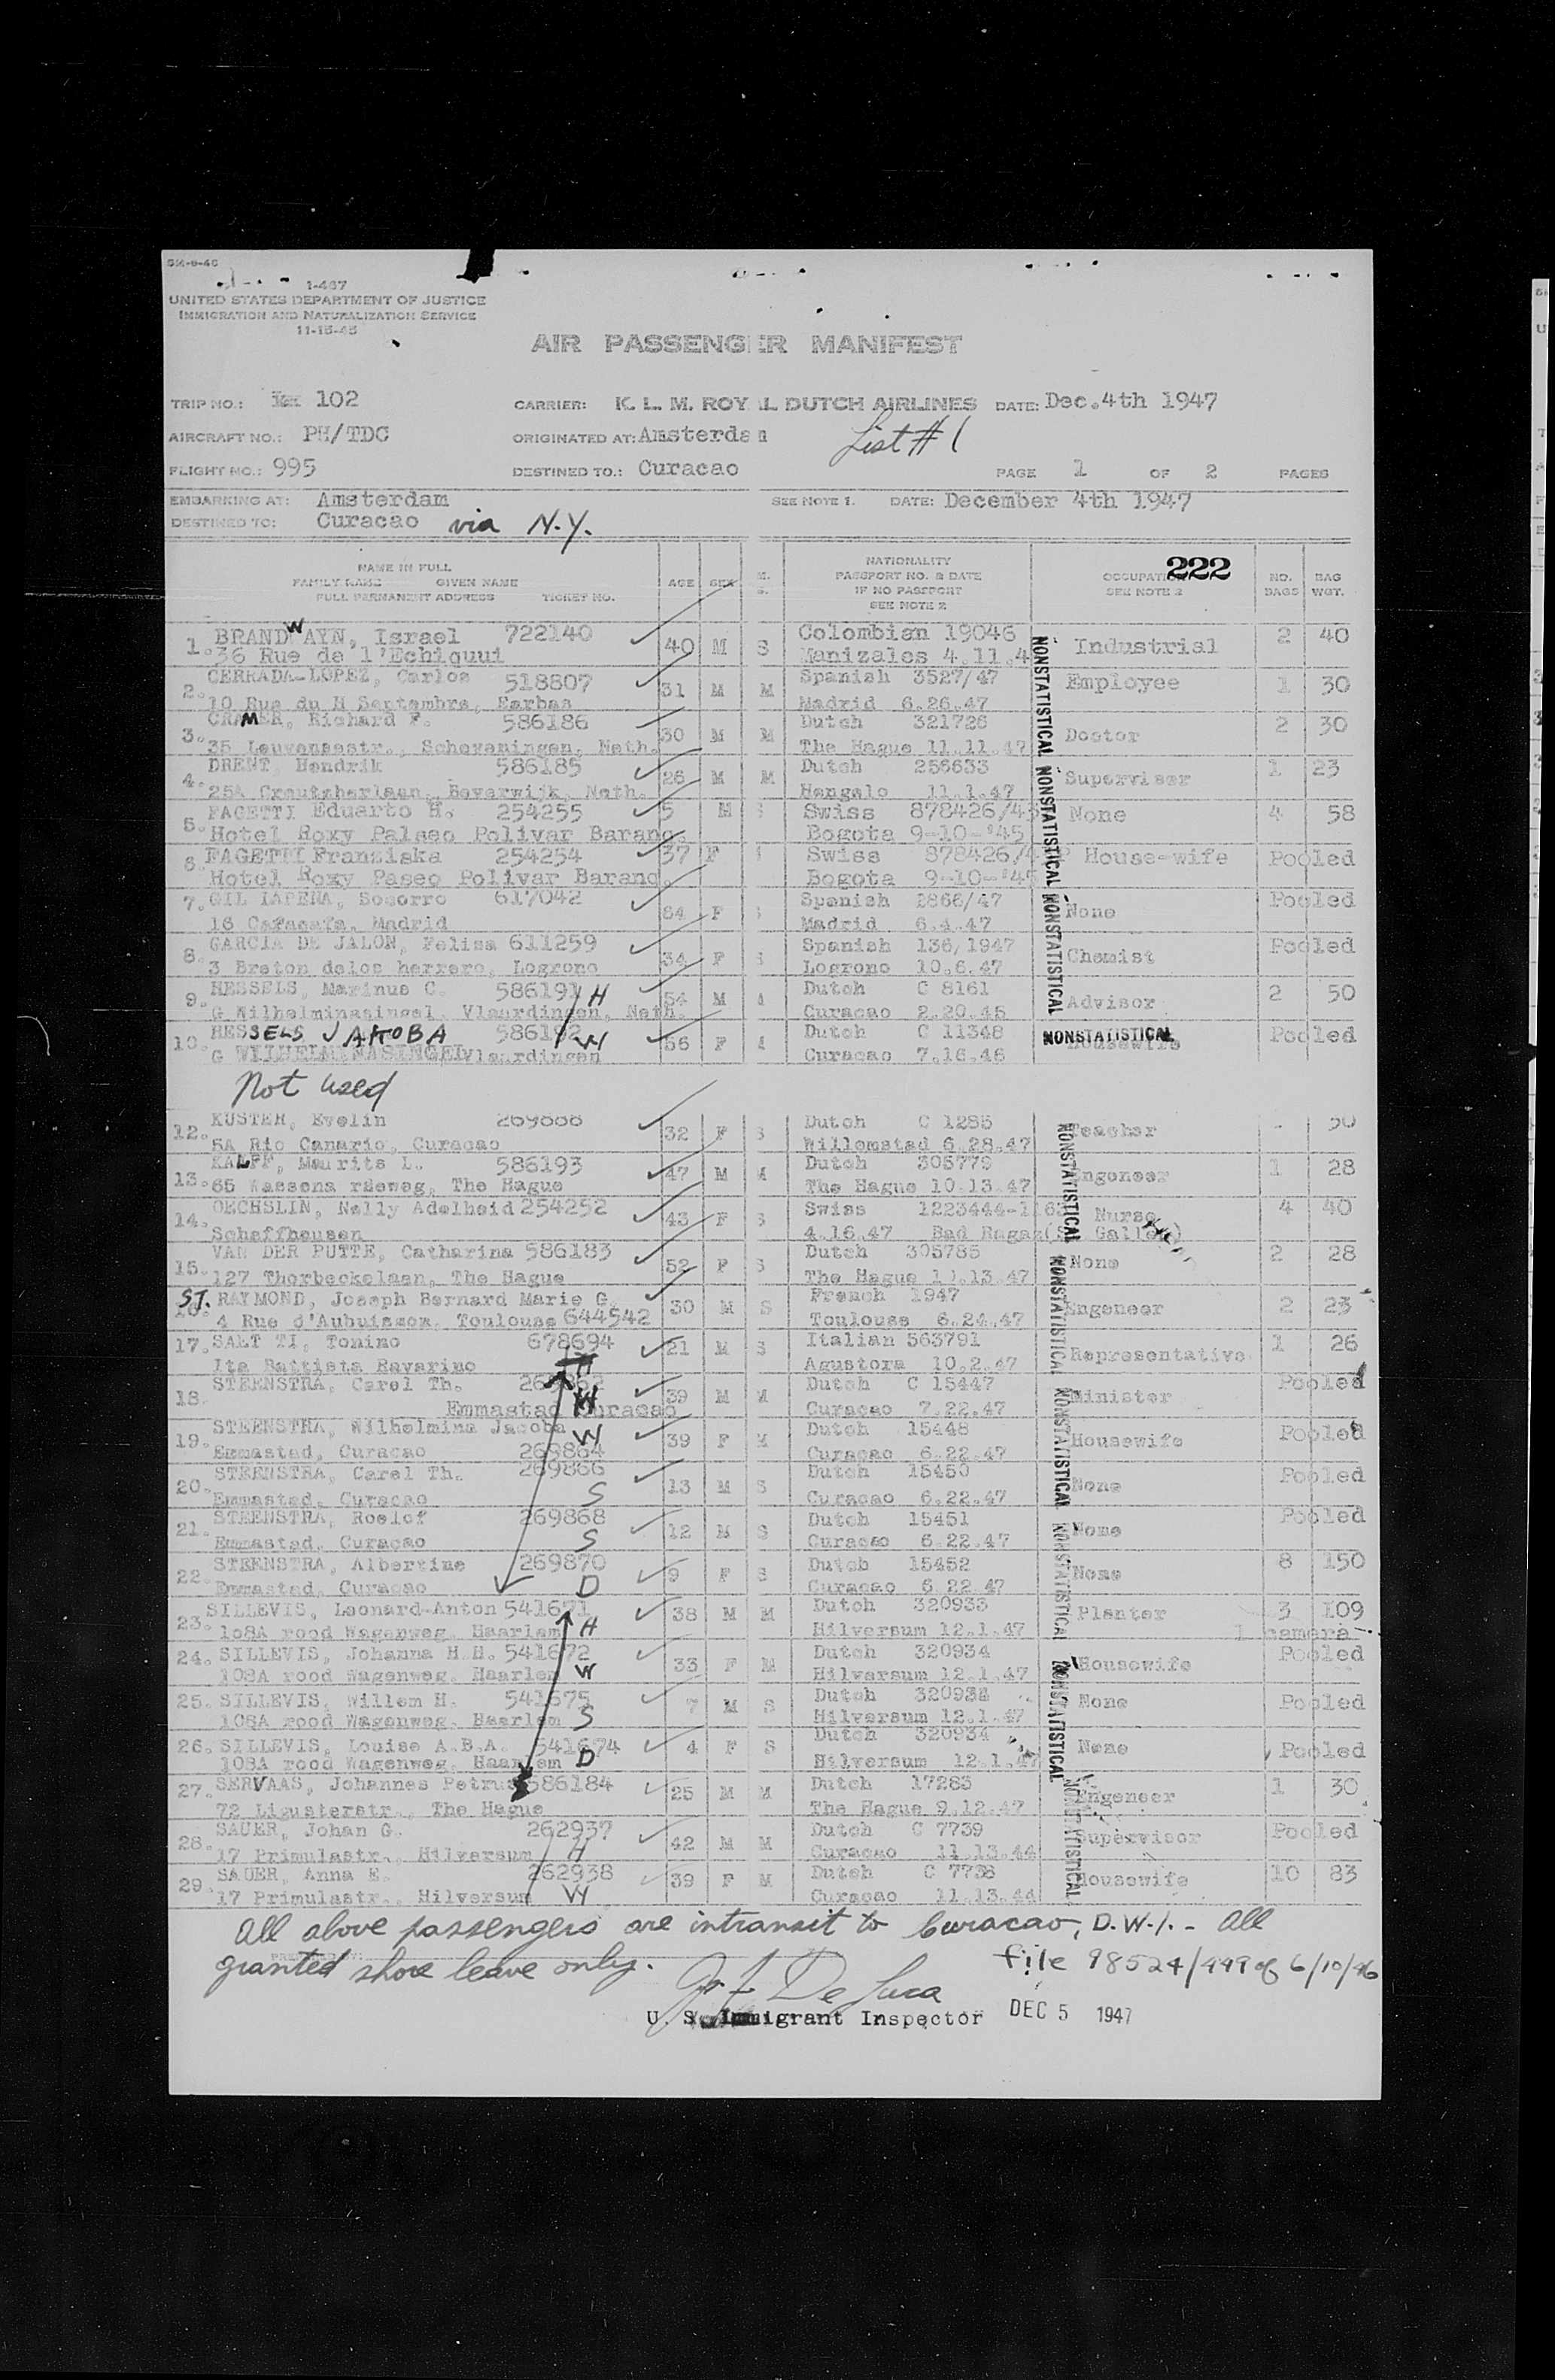 1-467
UNITED STATES DEPARTMENT OF JUSTICE
IMMIGRATION AND NATURALIZATION SERVICE
11-15-45
AIR PASSENGER MANIFEST
TRIP NO.: 102 CARRIER: K. L. M. ROYAL DUTCH AIRLINES DATE: Dec.4th 1947
AIRCRAFT NO.: PH/TDC ORIGINATED AT: Amsterdam List # 1
FLIGHT NO.: 995 DESTINED TO.: Curacao PAGE 1 OF 2 PAGES
EMBARKING AT: Amsterdam SEE NOTE 1. DATE: December 4th 1947
DESTINED TO: Curacao via N.Y.
222
NAME IN FULL NATIONALITY
FAMILY NAME GIVEN NAME AGE SEX M. PASSPORT NO. & DATE OCCUPATION NO. BAG
FULL PERMANENT ADDRESS TICKET NO. S. IF NO PASSPORT SEE NOTE 2 BAGS WGT.
SEE NOTE 2
1. BRANDWAYN, Israel 722140 40 M S Colombian 19046 Industrial 2 40
36 Rue de l'Echiquui Manizales 4.11.4
2. CERRADA-LOPEZ, Carlos 518807 31 M M Spanish 3527/47 Employee 1 30
10 Rue du H Septembre, Madrid 6.26.47
3. CRAMER, Richard F. 586186 30 M M Dutch 321726 Doctor 2 30
35 Leuvensestr., Scheveningen, Neth. The Hague 11.11.47
4. DRENT Hendrik 586185 26 M M Dutch 256633 Supervisor 1 23
25A Creutzberlaan, Beverwijk, Neth. Hengelo 11.1.47
5. FAGETTI Eduarto H. 254255 5 M Swiss 878426/45 None 4 58
Hotel Roxy Palseo Polivar Baranq. Bogota 9-10-'45
6 FAGETTI Franziska 254254 37 F Swiss 878426/4 House-wife Pooled
Hotel Roxy Paseo Polivar Baranq. Bogota 9-10-'45
7. GIL LAPENA, Socorro 617042 64 F Spanish 2866/47 None Pooled
16 Madrid Madrid 6.4.47
8. GARCIA DE JALON, Felisa 611259 34 F Spanish 136/1947 Chemist Pooled
3 Breton delos herrero, Logrono Logrono 10.6.47
9. HESSELS, Marinus C. 586191 H 54 M Dutch C 8161 Advisor 2 50
G Wilhelminasingel, Vlaardingen, Neth. Curacao 2.20.46
10. HESSELS JAKOBA 586192 W 56 F Dutch C 11348 Housewife Pooled
G WILHELMINASINGEL Vlaardingen Curacao 7.16.46
Not used
12. KUSTER, Evelin 269888 32 F S Dutch C 1285 Teacher 30
5A Rio Canario, Curacao Willemstad 6.28.47
13. KALFF, Maurits L. 586193 47 M M Dutch 305779 Engeneer 1 28
65 The Hague The Hague 10.13.47
14. OECHSLIN, Nelly Adelheid 254252 43 F S Swiss 1223444-1163 Nurse 4 40
Schaffhausen 4.16.47 Bad Ragaz(St Gallen)
15. VAN DER PUTTE, Catharina 586183 52 F S Dutch 305785 None 2 28
127 Thorbeckelaan, The Hague The Hague 11.13.47
16. ST. RAYMOND, Joseph Bernard Marie G. 30 M S French 1947 Engeneer 2 23
4 Rue d'Aubuisson. Toulouse 644542 Toulouse 6.24.47
17. SALT TI, Tonino 678694 21 M S Italian 563791 Representative 1 26
Ita Battista Ravarino Agustora 10.2.47
18. STEENSTRA, Carel Th. H 39 M M Dutch C 15447 Minister Pooled
Emmastad Curacao Curacao 7.22.47
19. STEENSTRA, Wilhelmina Jacoba W 39 F M Dutch 15448 Housewife Pooled
Emmastad, Curacao 269864 Curacao 6.22.47
20. STEENSTRA, Carel Th. 269866 13 M S Dutch 15450 None Pooled
Emmastad, Curacao S Curacao 6.22.47
21. STEENSTRA, Roelof 269868 12 M S Dutch 15451 None Pooled
Emmastad, Curacao S Curacao 6.22.47
22. STEENSTRA, Albertine 269870 9 F S Dutch 15452 None 8 150
Emmastad, Curacao D Curacao 6.22.47
23. SILLEVIS, Leonard-Anton 541671 38 M M Dutch 320933 Planter 3 109
108A rood Wagenweg, Haarlem H Hilversum 12.1.47 1 camera
24. SILLEVIS, Johanna H.H. 541672 33 F M Dutch 320934 Housewife Pooled
108A rood Wagenweg. Haarlem W Hilversum 12.1.47
25. SILLEVIS, Willem H. 541675 7 M S Dutch 320934 None Pooled
108A rood Wagenweg. Haarlem S Hilversum 12.1.47
26. SILLEVIS, Louise A.B.A. 541674 4 F S Dutch 320934 None Pooled
108A rood Wagenweg. Haarlem D Hilversum 12.1.47
27. SERVAAS, Johannes Petrus 586184 25 M M Dutch 17283 Engeneer 1 30
72 Ligusterstr., The Hague The Hague 9.12.47
28. SAUER, Johan G. 262937 42 M M Dutch C 7739 Supervisor Pooled
17 Primulastr., Hilversum H Curacao 11.13.44
29. SAUER, Anna E. 262938 39 F M Dutch C 7738 Housewife 10 83
17 Primulastr., Hilversum W Curacao 11.13.44
NONSTATISTICAL NONSTATISTICAL NONSTATISTICAL
NONSTATISTICAL
NONSTATISTICAL NONSTATISTICAL NONSTATISTICAL NONSTATISTICAL NONSTATISTICAL NONSTATISTICAL
All above passengers are intransit to Curacao, D.W.I. - All
granted shore leave only. file 98524/999 of 6/10/46
De Luca
U. S. Immigrant Inspector DEC 5 1947